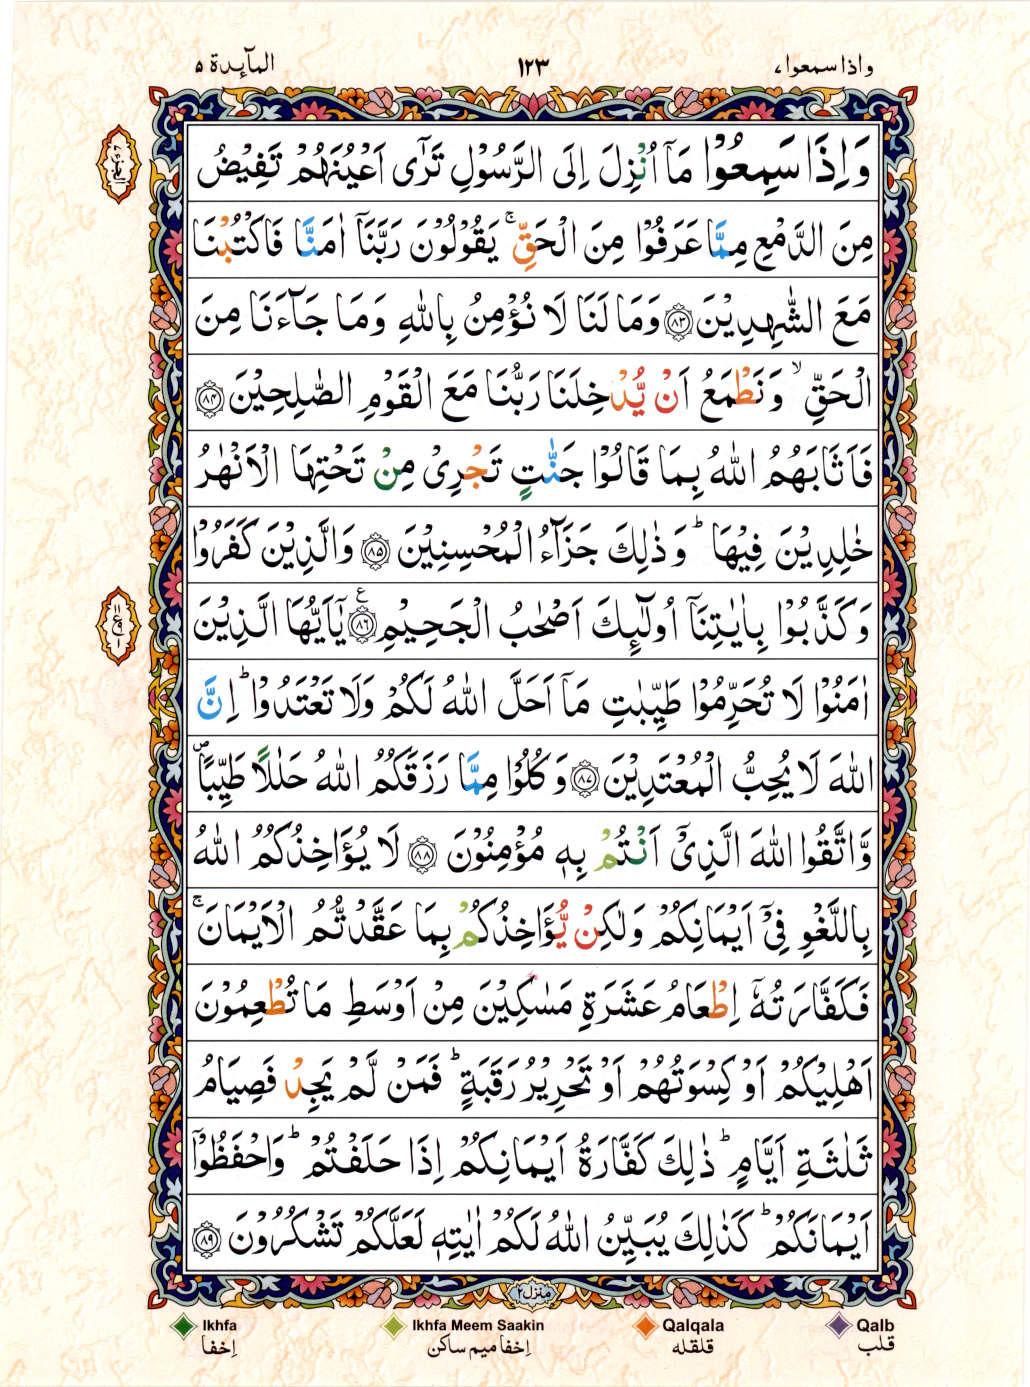 واذا سمعوا ٧
١٢٣
المآىِٕدة ٥
الجزء ٧
وَاِذَا سَمِعُوْا مَاۤ اُنْزِلَ اِلَى الرَّسُوْلِ تَرٰۤى اَعْيُنَهُمْ تَفِيْضُ
مِنَ الدَّمْعِ مِمَّا عَرَفُوْا مِنَ الْحَقِّ ۚ يَقُوْلُوْنَ رَبَّنَاۤ اٰمَنَّا فَاكْتُبْنَا
مَعَ الشّٰهِدِيْنَ ﴿٨٣﴾ وَمَا لَنَا لَا نُؤْمِنُ بِاللّٰهِ وَمَا جَآءَنَا مِنَ
الْحَقِّ ۙ وَنَطْمَعُ اَنْ يُّدْخِلَنَا رَبُّنَا مَعَ الْقَوْمِ الصّٰلِحِيْنَ ﴿٨٤﴾
فَاَثَابَهُمُ اللّٰهُ بِمَا قَالُوْا جَنّٰتٍ تَجْرِىْ مِنْ تَحْتِهَا الْاَنْهٰرُ
خٰلِدِيْنَ فِيْهَا ؕ وَذٰلِكَ جَزَآءُ الْمُحْسِنِيْنَ ﴿٨٥﴾ وَالَّذِيْنَ كَفَرُوْا
وَكَذَّبُوْا بِاٰيٰتِنَاۤ اُولٰٓىِٕكَ اَصْحٰبُ الْجَحِيْمِ ﴿٨٦﴾ ع يٰۤاَيُّهَا الَّذِيْنَ
اٰمَنُوْا لَا تُحَرِّمُوْا طَيِّبٰتِ مَاۤ اَحَلَّ اللّٰهُ لَكُمْ وَلَا تَعْتَدُوْا ؕ اِنَّ
اللّٰهَ لَا يُحِبُّ الْمُعْتَدِيْنَ ﴿٨٧﴾ وَكُلُوْا مِمَّا رَزَقَكُمُ اللّٰهُ حَلٰلًا طَيِّبًا ۪
وَّاتَّقُوا اللّٰهَ الَّذِىْۤ اَنْتُمْ بِهٖ مُؤْمِنُوْنَ ﴿٨٨﴾ لَا يُؤَاخِذُكُمُ اللّٰهُ
بِاللَّغْوِ فِىْۤ اَيْمَانِكُمْ وَلٰكِنْ يُّؤَاخِذُكُمْ بِمَا عَقَّدْتُّمُ الْاَيْمَانَ ۚ
فَكَفَّارَتُهٗۤ اِطْعَامُ عَشَرَةِ مَسٰكِيْنَ مِنْ اَوْسَطِ مَا تُطْعِمُوْنَ
اَهْلِيْكُمْ اَوْ كِسْوَتُهُمْ اَوْ تَحْرِيْرُ رَقَبَةٍ ؕ فَمَنْ لَّمْ يَجِدْ فَصِيَامُ
ثَلٰثَةِ اَيَّامٍ ؕ ذٰلِكَ كَفَّارَةُ اَيْمَانِكُمْ اِذَا حَلَفْتُمْ ؕ وَاحْفَظُوْۤا
اَيْمَانَكُمْ ؕ كَذٰلِكَ يُبَيِّنُ اللّٰهُ لَكُمْ اٰيٰتِهٖ لَعَلَّكُمْ تَشْكُرُوْنَ ﴿٨٩﴾
منزل ٢
Ikhfa Ikhfa Meem Saakin Qalqala Qalb
اِخفا اِخفا میم ساکن قلقله قلب